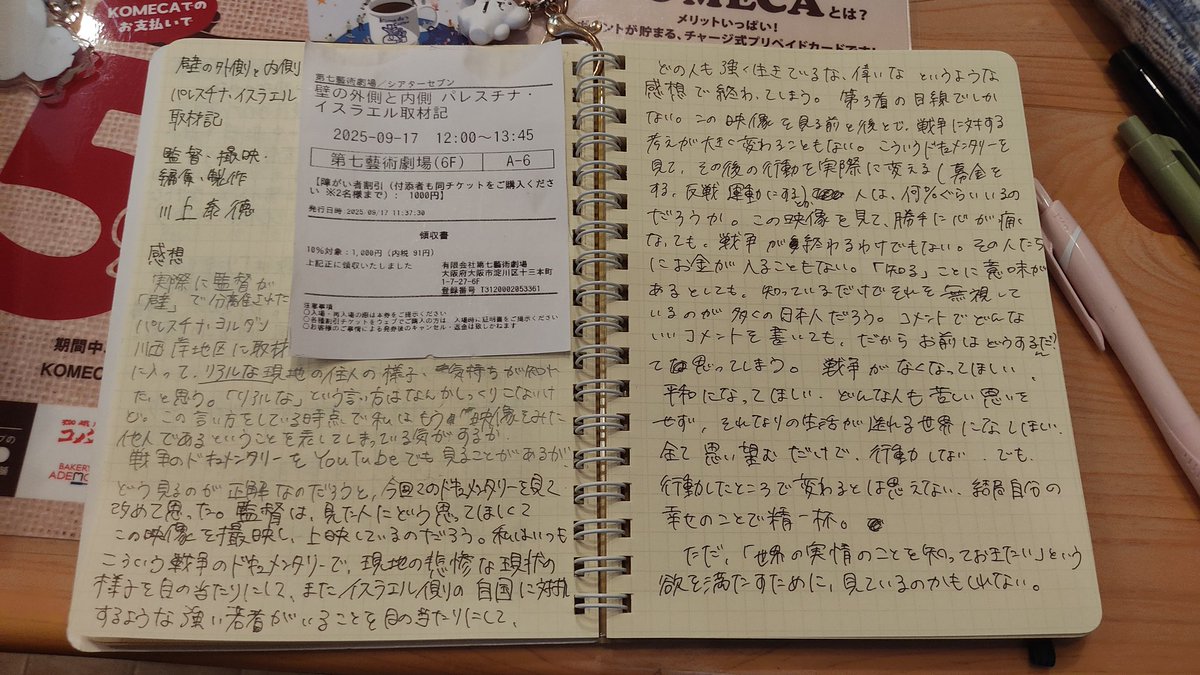 KOMECAでの
お支払いで
5
KOMECAとは?
メリットいっぱい!
ポイントが貯まる、チャージ式プリペイドカードです!
期間中
KOMEC
BAKERY
ADEMOK
壁の外側と内側
パレスチナ・イスラエル
取材記
監督・撮影・
編集・製作
川上泰徳
感想
実際に監督が
「壁」で分離された
パレスチナ・ヨルダン
川西岸地区に取材
に入って、リアルな現地の住人の様子、気持ちが知れ
たと思う。「リアルな」という言い方はなんかしっくりこないけ
ど。この言い方をしている時点で私はもう映像をみた
他人であるということを表してしまっている気がするが
戦争のドキュメンタリーをYouTubeでも見ることがあるが、
どう見るのが正解なのだろうと、今回このドキュメンタリーを見て
改めて思った。監督は、見た人にどう思ってほしくて
この映像を撮影し、上映しているのだろう。私はいつも
こういう戦争のドキュメンタリーで、現地の悲惨な現状の
様子を目の当たりにして、またイスラエル側の自国に対抗
するような強い若者がいることを目の当たりにして、
第七藝術劇場/シアターセブン
壁の外側と内側 パレスチナ・
イスラエル取材記
2025-09-17 12:00~13:45
第七藝術劇場(6F) A-6
【障がい者割引(付添者も同チケットをご購入くださ
い ※2名様まで): 1000円】
発行日時:2025/09/17 11:37:30
領収書
10%対象:1,000円(内税 91円)
上記正に領収いたしました
有限会社第七藝術劇場
大阪府大阪市淀川区十三本町
1-7-27-6F
登録番号 T3120002053361
注意事項
○入場・再入場の際は本券をご提示ください
○各種割引チケットをウェブでご購入の方は、入場時に証明書をご提示ください
○お客様のご事情による発券後のキャンセル・返金は致しかねます
どの人も強く生きているな、偉いな というような
感想で終わってしまう。第3者の目線でしか
ない。この映像を見る前と後とで、戦争に対する
考えが大きく変わることもない。こういうドキュメンタリーを
見て、その後の行動を実際に変える(募金を
する、反戦運動にする) 人は、何%ぐらいいるの
だろうか。この映像を見て、勝手に心が痛く
なっても。戦争が終わるわけでもない。その人たち
にお金が入ることもない。「知る」ことに意味が
あるとしても。知っているだけでそれを無視して
いるのが多くの日本人だろう。コメントでどんな
いいコメントを書いても、だからお前はどうするんだ?
て思ってしまう。 戦争がなくなってほしい、
平和になってほしい、どんな人も苦しい思いを
せず、それなりの生活が送れる世界になってほしい、
全て思い望むだけで、行動しない、でも、
行動したところで変わるとは思えない、結局自分の
幸せのことで精一杯。
ただ、「世界の実情のことを知っておきたい」という
欲を満たすために、見ているのかもしれない。